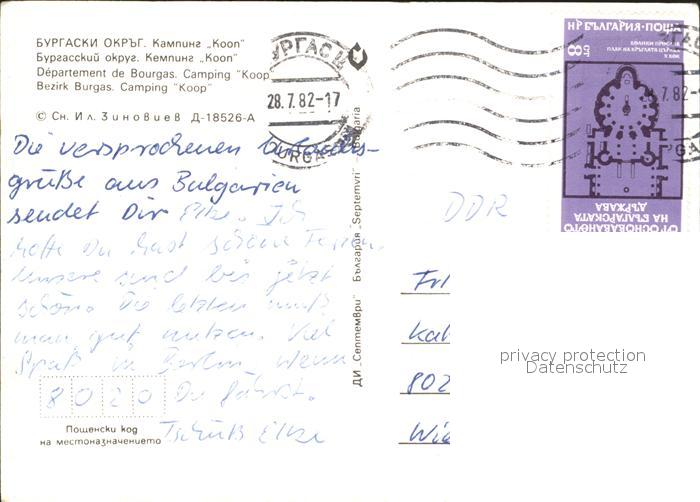 БУРГАСКИ ОКРЪГ. Кампинг „Кооп"
Бургасский округ. Кемпинг „Кооп"
Département de Bourgas. Camping "Koop
Bezirk Burgas. Camping "Koop"
© Сн. Ил. Зиновиев Д-18526-А
Die versprochenen Urlaubs-
grüße aus Bulgarien
sendet Dir Elke. Ich
hoffe Du hast schöne Ferien.
Unsere sind bis jetzt
schön. Die letzten muß
man gut nutzen. Viel
Spaß in Berlin, wenn
Du fährst.
Tschüß Elke
8020
Пощенски код
на местоназначението
ДИ „Септември" България „Septemvri" Bulgaria
БУРГАС
28.7.82-17
BURGAS
НР БЪЛГАРИЯ·ПОЩА
8 СТ
ОТ ОСНОВАВАНЕТО
НА БЪЛГАРСКАТА
ДЪРЖАВА
DDR
802
privacy protection
Datenschutz